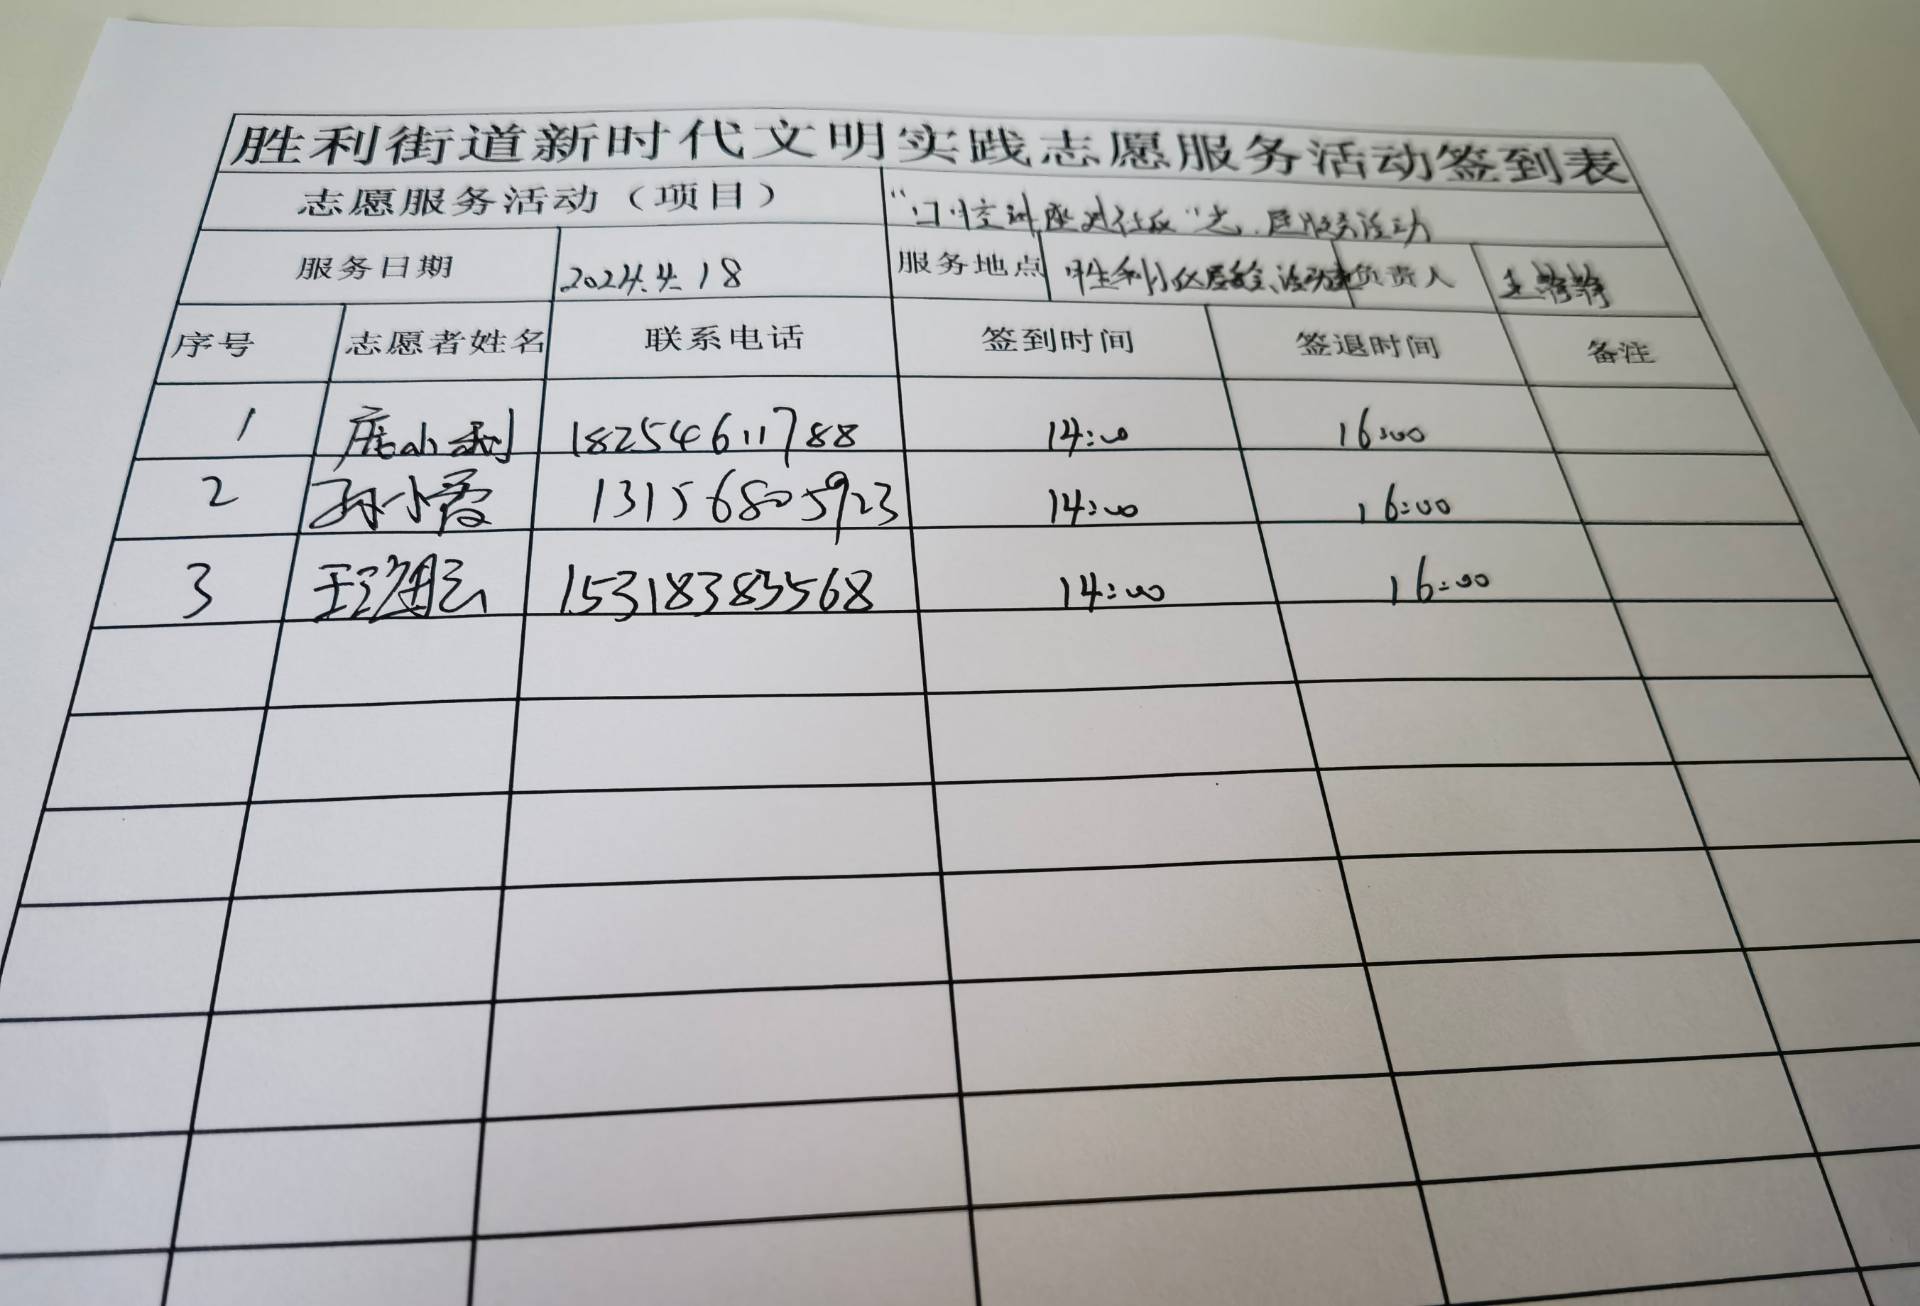 胜利街道新时代文明实践志愿服务活动签到表
志愿服务活动（项目） "口腔讲座进社区"志愿服务活动
服务日期 2024.4.18 服务地点 胜利社区 活动室 负责人 王静静
序号 志愿者姓名 联系电话 签到时间 签退时间 备注
1 小利 18254611788 14:00 16:00
2 孙小霞 13156805923 14:00 16:00
3 王 云 15318383568 14:00 16:00